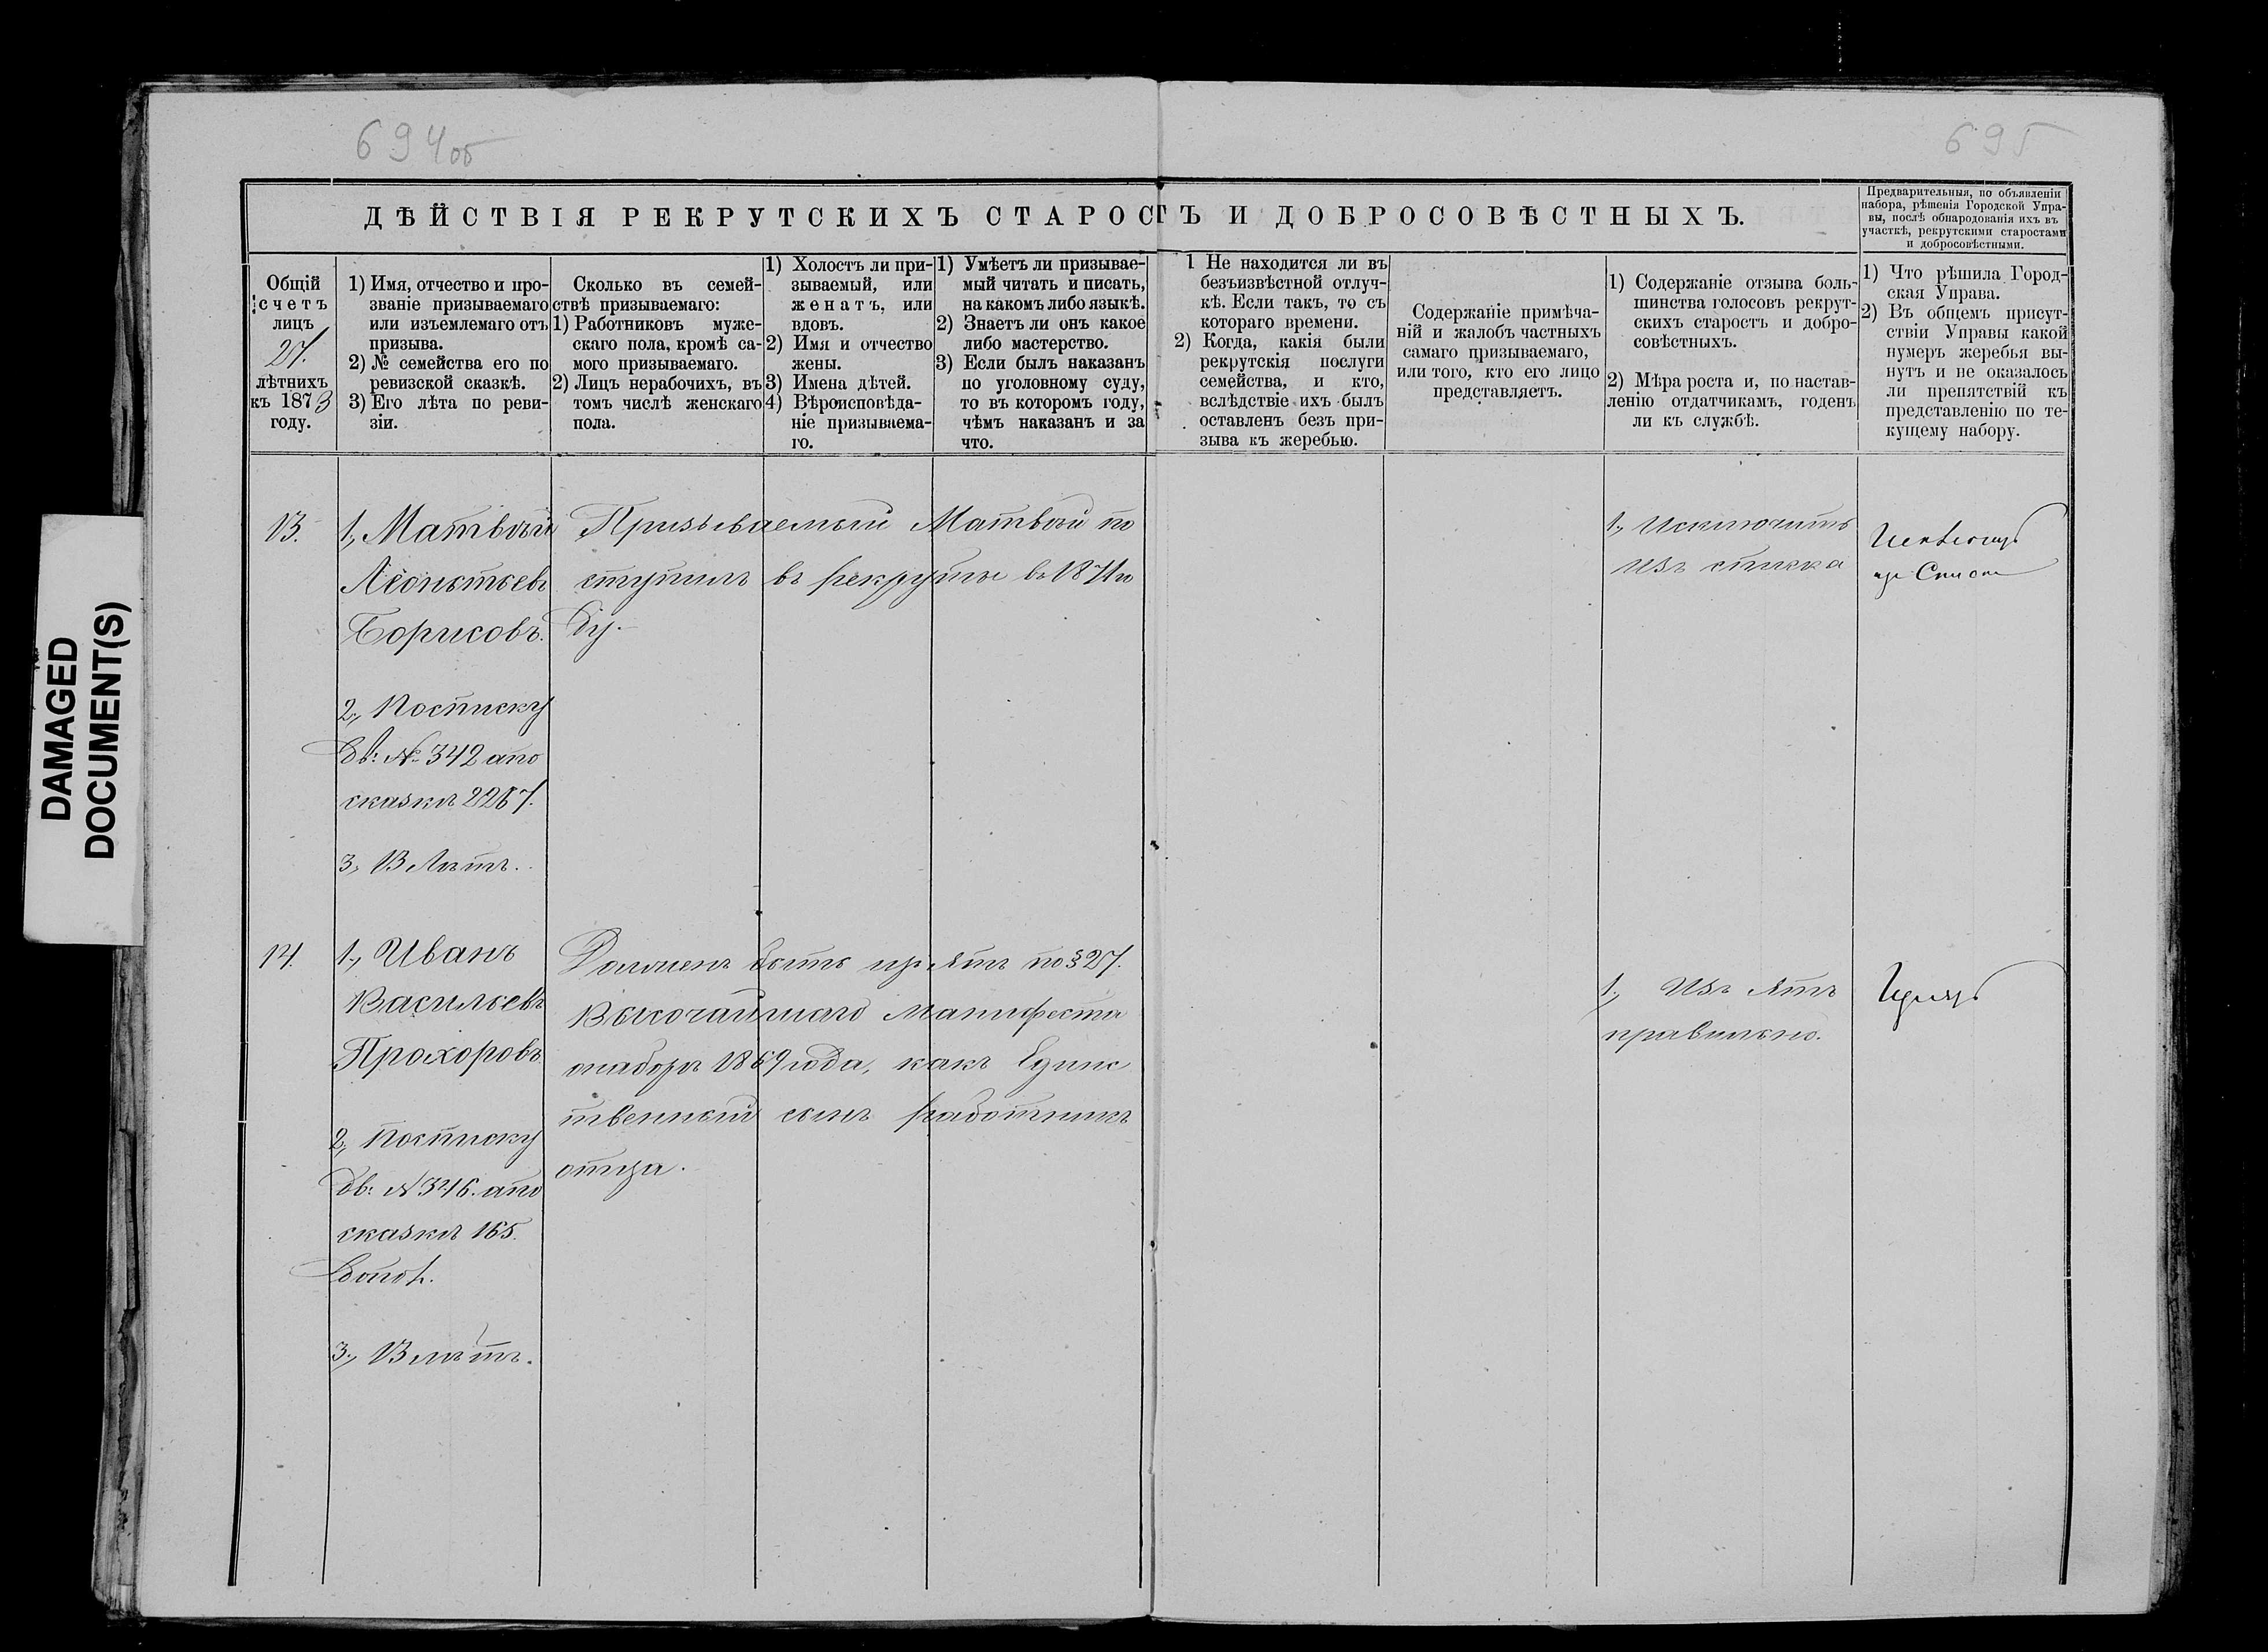 694об
695
ДѢЙСТВІЯ РЕКРУТСКИХЪ СТАРОСТЪ И ДОБРОСОВѢСТНЫХЪ.
Предварительныя, по объявленіи
набора, рѣшенія Городской Упра-
вы, послѣ обнародованія ихъ въ
участкѣ, рекрутскими старостами
и добросовѣстными.
Общій
счетъ
лицъ
27.
лѣтнихъ
къ 1873
году.
1) Имя, отчество и про-
званіе призываемаго
или изъемлемаго отъ
призыва.
2) № семейства его по
ревизской сказкѣ.
3) Его лѣта по реви-
зіи.
Сколько въ семей-
ствѣ призываемаго:
1) Работниковъ муже-
скаго пола, кромѣ са-
мого призываемаго.
2) Лицъ нерабочихъ, въ
томъ числѣ женскаго
пола.
1) Холостъ ли при-
зываемый, или
женатъ, или
вдовъ.
2) Имя и отчество
жены.
3) Имена дѣтей.
4) Вѣроисповѣда-
ніе призываема-
го.
1) Умѣетъ ли призывае-
мый читать и писать,
на какомъ либо языкѣ.
2) Знаетъ ли онъ какое
либо мастерство.
3) Если былъ наказанъ
по уголовному суду,
то въ которомъ году,
чѣмъ наказанъ и за
что.
1 Не находится ли въ
безъизвѣстной отлуч-
кѣ. Если такъ, то съ
котораго времени.
2) Когда, какія были
рекрутскія послуги
семейства, и кто,
вслѣдствіе ихъ былъ
оставленъ безъ при-
зыва къ жеребью.
Содержаніе примѣча-
ній и жалобъ частныхъ
самаго призываемаго,
или того, кто его лицо
представляетъ.
1) Содержаніе отзыва боль-
шинства голосовъ рекрут-
скихъ старостъ и добро-
совѣстныхъ.
2) Мѣра роста и, по настав-
ленію отдатчикамъ, годенъ
ли къ службѣ.
1) Что рѣшила Город-
ская Управа.
2) Въ общемъ присут-
ствіи Управы какой
нумеръ жеребья вы-
нутъ и не оказалось
ли препятствій къ
представленію по те-
кущему набору.
13.
1, Матвѣй
Леонтьевъ
Борисовъ.
2, По списку
дв: № 342 а по
сказкѣ 2267.
3, 13 Лѣтъ.
Призываемый Матвѣй по
ступилъ въ рекруты въ 1871 го
ду.
1, Исключить
изъ списка
Исключ
изъ Списк
14.
1, Иванъ
Васильевъ
Прохоровъ
2, По списку
дв: № 346. а по
сказкѣ 165.
3, 13 лѣтъ.
Долженъ быть изъятъ по § 27.
Высочайшаго Манифеста
о наборѣ 1869 года, какъ Единс
твенный сынъ работникъ
отца.
1, Изъятъ
правильно.
Изъят
DAMAGED
DOCUMENT(S)